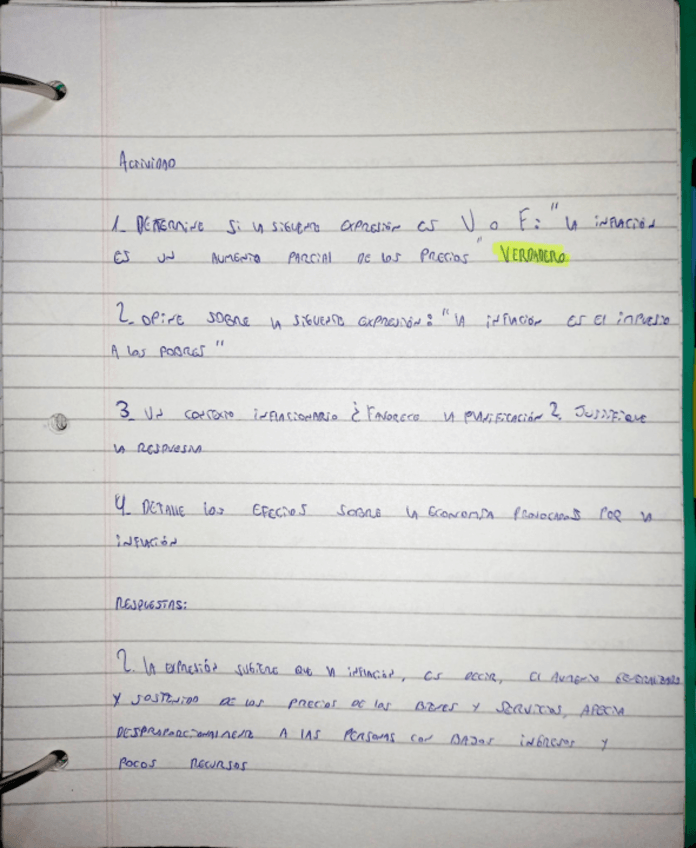 Actividad
1_ DETERMINE SI LA SIGUIENTE EXPRESIÓN ES V o F: "LA INFLACIÓN
ES UN AUMENTO PARCIAL DE LOS PRECIOS" VERDADERO
2_ OPINE SOBRE LA SIGUIENTE EXPRESIÓN: "LA INFLACIÓN ES EL IMPUESTO
A LOS POBRES"
3_ UN CONTEXTO INFLACIONARIO ¿FAVORECE LA PLANIFICACIÓN?. JUSTIFIQUE
LA RESPUESTA
4_ DETALLE LOS EFECTOS SOBRE LA ECONOMÍA PROVOCADOS POR LA
INFLACIÓN
RESPUESTAS:
2. LA EXPRESIÓN SUGIERE QUE LA INFLACIÓN, ES DECIR, EL AUMENTO GENERALIZADO
Y SOSTENIDO DE LOS PRECIOS DE LOS BIENES Y SERVICIOS, AFECTA
DESPROPORCIONALMENTE A LAS PERSONAS CON BAJOS INGRESOS Y
POCOS RECURSOS